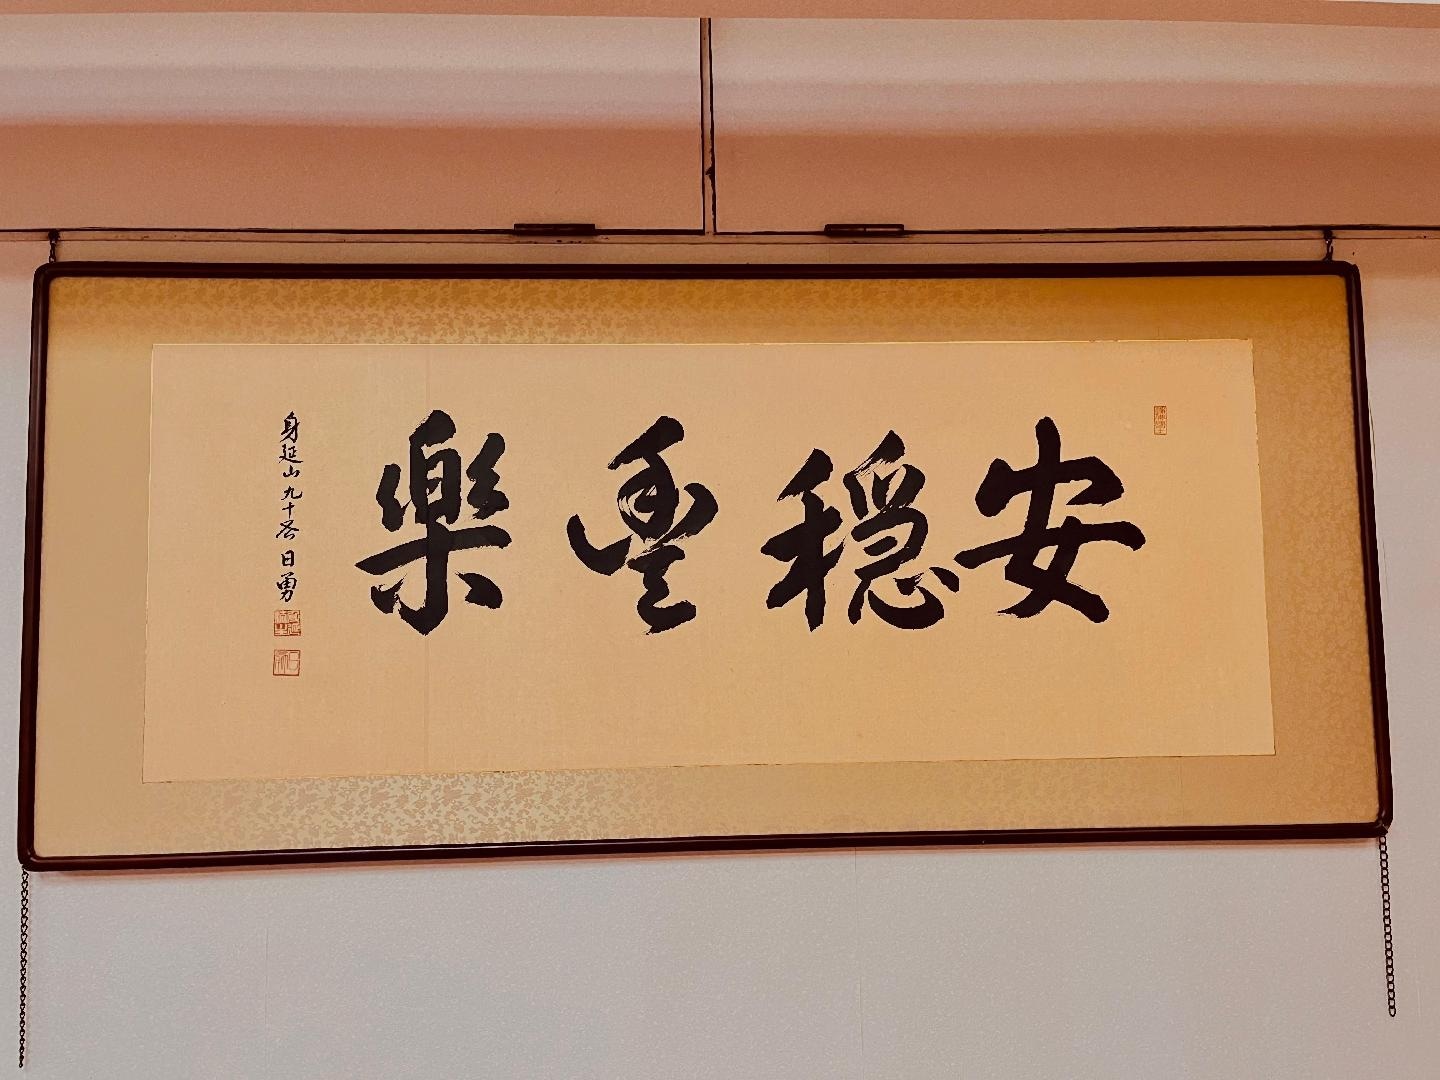 安穏豊樂
身延山九十世日勇